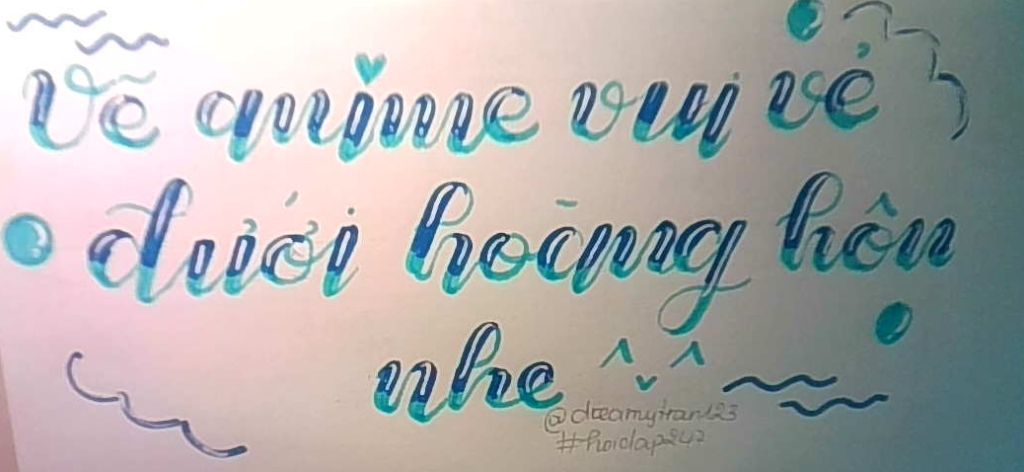 Vẽ anime vui vẻ
dưới hoàng hôn
nhe ^ ᵕ ^
@dreamytran123
#hoidap247